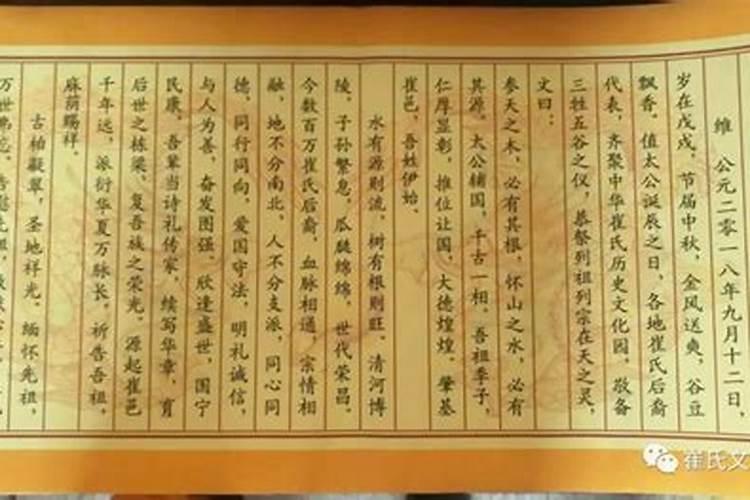 维 公元二零一八年九月十二日，
岁在戊戌，节届中秋，金风送爽，谷豆
飘香。值太公诞辰之日，各地崔氏后裔
代表，齐聚中华崔氏历史文化园，敬备
三牲五谷之仪，恭祭列祖列宗在天之灵，
文曰：
参天之木，必有其根，怀山之水，必有
其源。太公辅国，千古一相。吾祖季子，
仁厚显彰，推位让国，大德煌煌。肇基
崔邑，吾姓伊始。
水有源则流，树有根则旺。清河博
陵，子孙繁息，瓜瓞绵绵，世代荣昌。
今数百万崔氏后裔，血脉相通，宗情相
融，地不分南北，人不分支派，同心同
德，同行同向，爱国守法，明礼诚信，
与人为善，奋发图强。欣逢盛世，国宁
民康，吾辈当诗礼传家，续写华章，育
后世之栋梁，复吾族之荣光。源起崔邑
千年远，派衍华夏万脉长。祈告吾祖，
麻荫赐祥。
古柏凝翠，圣地祥光。缅怀先祖，
万世
崔氏文